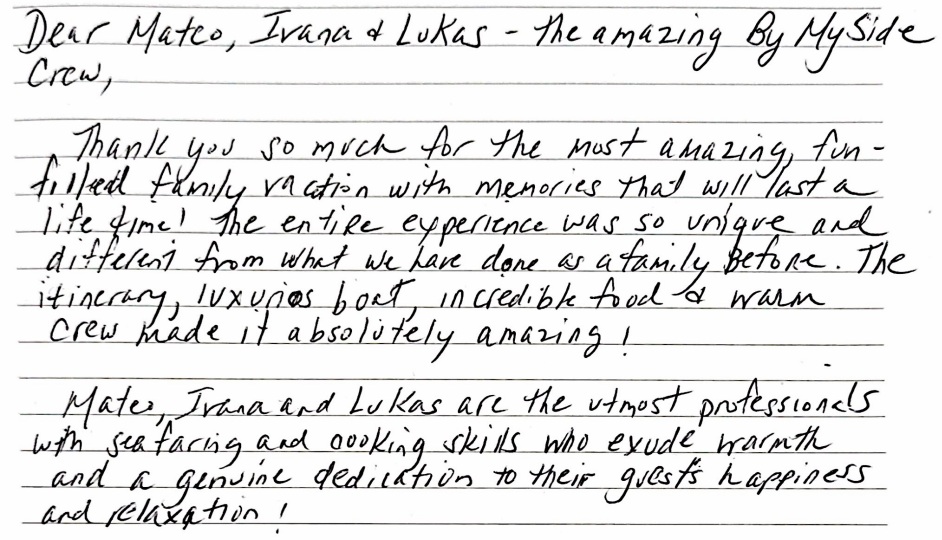 Dear Mateo, Ivana & Lukas - the amazing By My Side
Crew,
Thank you so much for the most amazing, fun-
filled family vaction with memories that will last a
life time! The entire experience was so unique and
different from what we have done as a family before. The
itinerary, luxurios boat, incredible food & warm
crew made it absolutely amazing!
Mateo, Ivana and Lukas are the utmost professionals
with seafaring and cooking skills who exude warmth
and a genuine dedication to their guest's happiness
and relaxation!